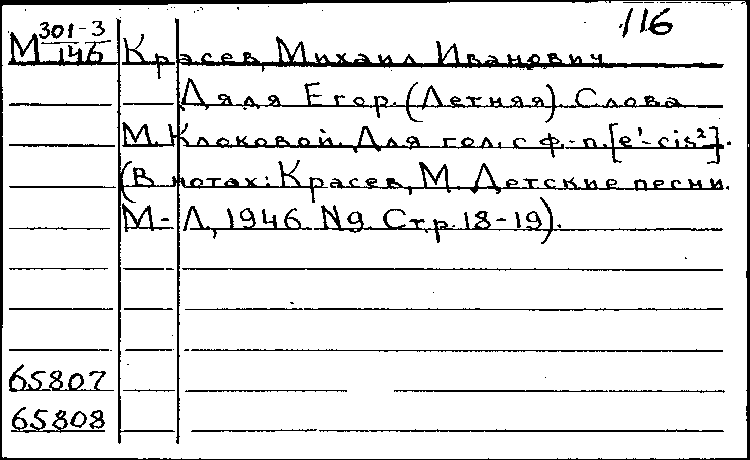 116
М 301-3/146 Красев, Михаил Иванович
Дядя Егор. (Летняя). Слова
М. Клоковой. Для гол. с ф.-п. [e¹-cis²].
(В нотах: Красев, М. Детские песни.
М-Л, 1946. N9. Стр. 18-19).
65807
65808